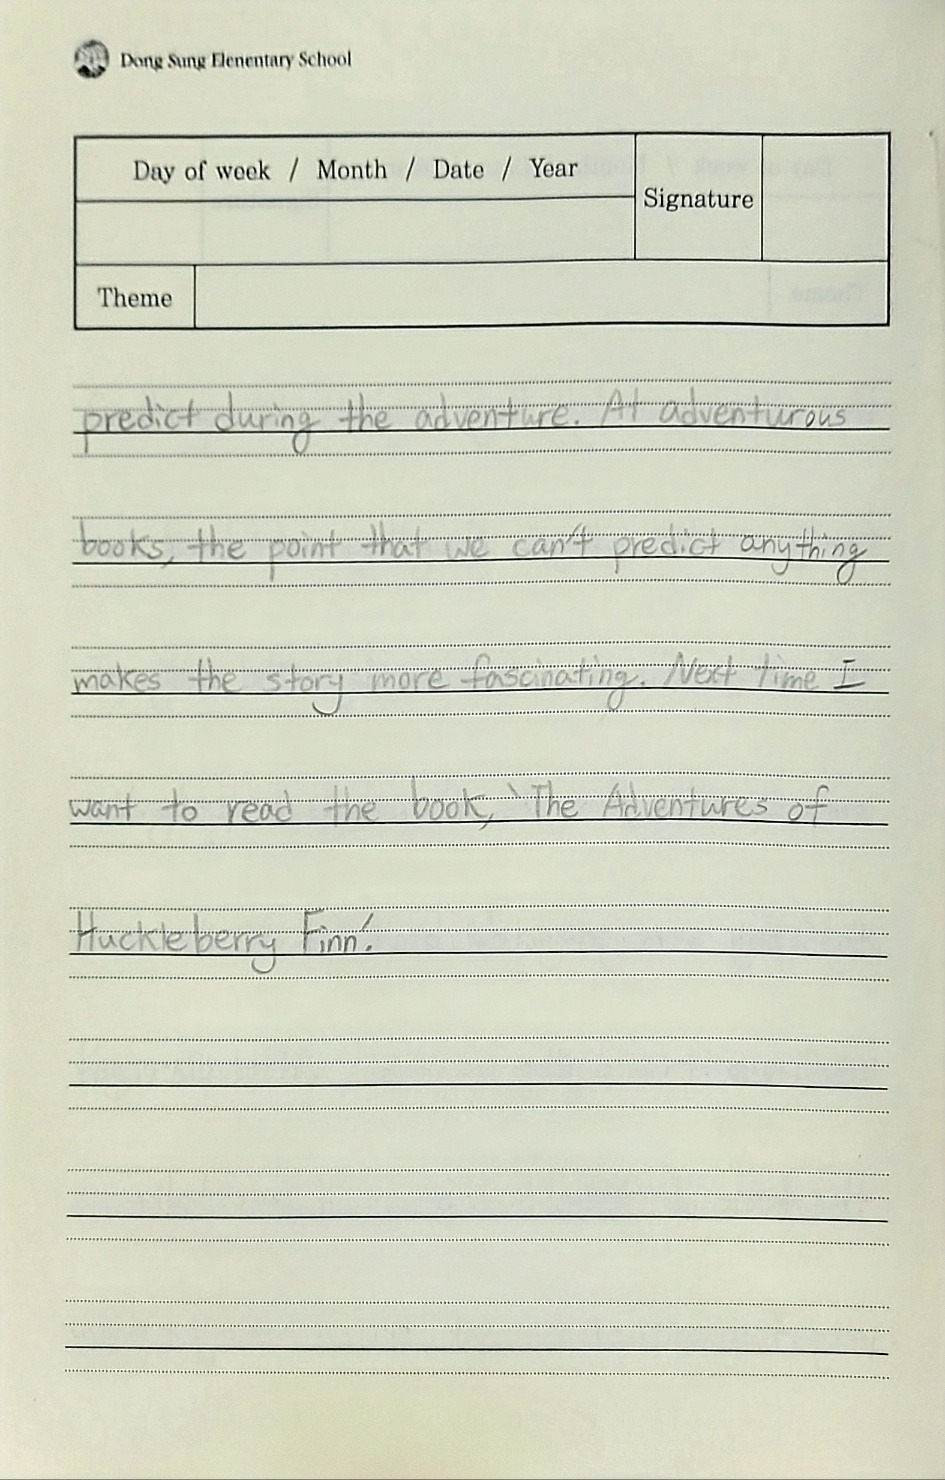 Dong Sung Elenentary School
Day of week / Month / Date / Year
Signature
Theme
predict during the adventure. At adventurous
books, the point that we can't predict anything
makes the story more fascinating. Next time I
want to read the book, 'The Adventures of
Huckleberry Finn'.